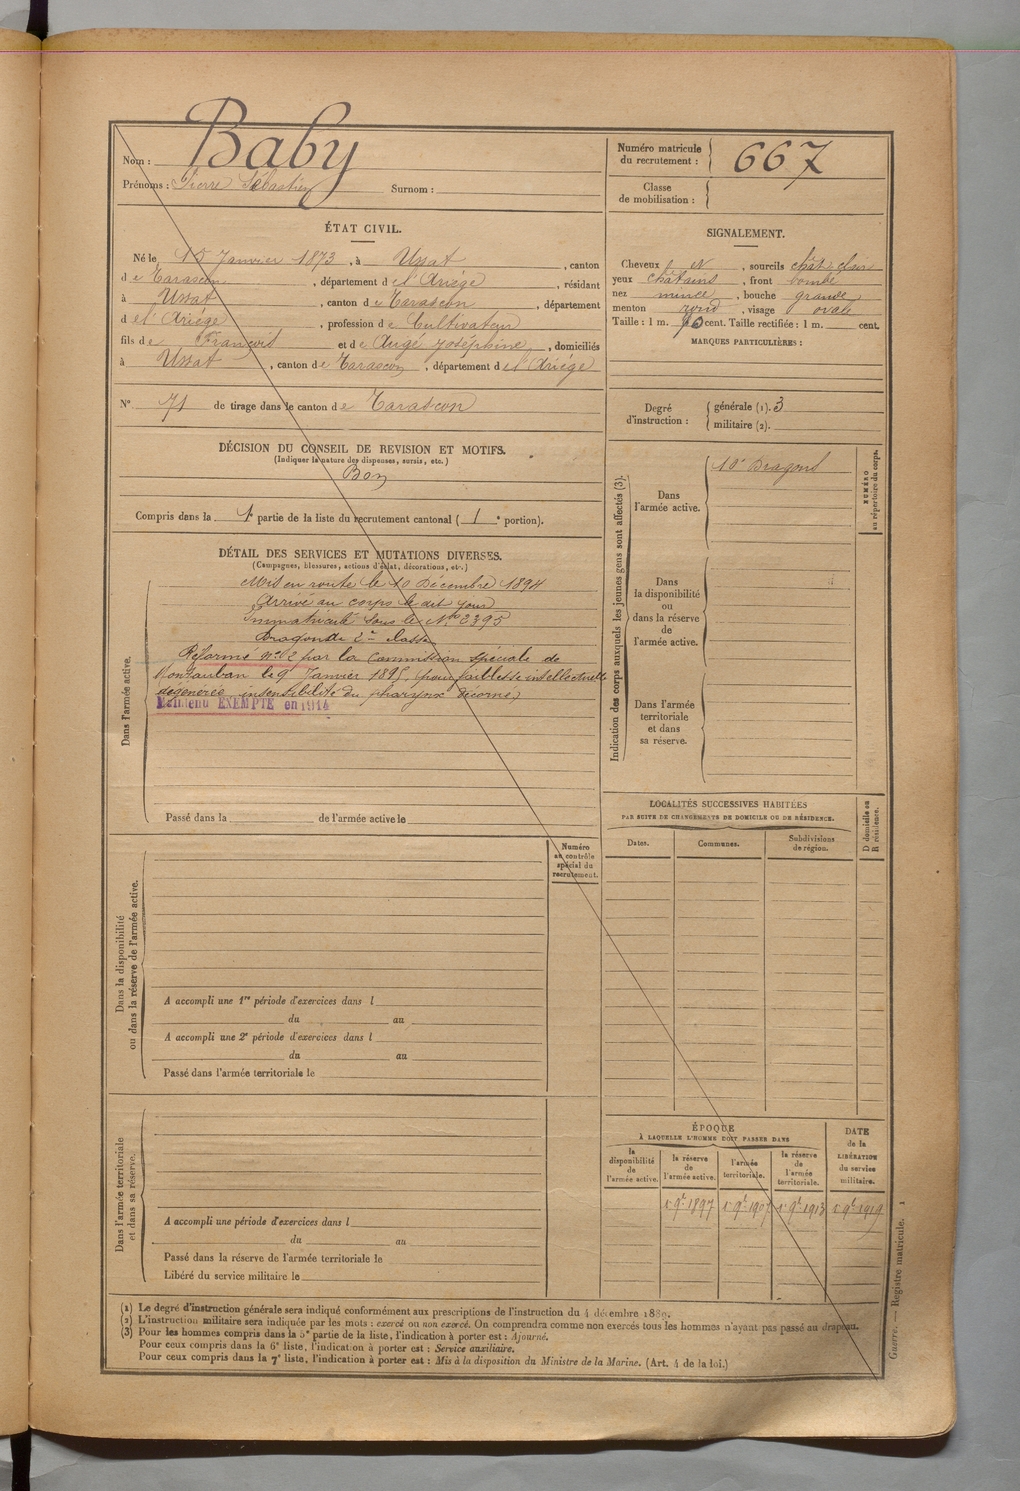 Nom : Baby
Prénoms : Pierre Sébastien Surnom :
Numéro matricule du recrutement : 667
Classe de mobilisation :
ÉTAT CIVIL.
Né le 15 Janvier 1873, à Ussat, canton
de Tarascon, département de l'Ariége, résidant
à Ussat, canton de Tarascon, département
de l'Ariége, profession de Cultivateur
fils de François et de Augé Joséphine, domiciliés
à Ussat, canton de Tarascon, département de l'Ariége
N° 71 de tirage dans le canton de Tarascon
SIGNALEMENT.
Cheveux et, sourcils chât-clair
yeux châtains, front bombé
nez mince, bouche grande
menton rond, visage ovale
Taille : 1 m. cent. Taille rectifiée : 1 m. cent.
MARQUES PARTICULIÈRES :
Degré d'instruction : générale (1). 3
militaire (2).
DÉCISION DU CONSEIL DE REVISION ET MOTIFS.
(Indiquer la nature des dispenses, sursis, etc.)
Bon
Compris dans la 1e partie de la liste du recrutement cantonal ( 1 e portion).
DÉTAIL DES SERVICES ET MUTATIONS DIVERSES.
(Campagnes, blessures, actions d'éclat, décorations, etc.)
Dans l'armée active.
Mis en route le 10 Décembre 1894
Arrivé au corps le dit jour
Immatriculé sous le N° 2395
Dragon de 2e classe
Réformé n° 2 par la Commission spéciale de
Montauban le 9 Janvier 1895 (pour faiblesse intellectuelle
dégénéré insensibilité du pharynx
Maintenu EXEMPTE en 1914
Passé dans la de l'armée active le
Indication des corps auxquels les jeunes gens sont affectés (3).
NUMÉRO au répertoire du corps.
Dans l'armée active.
10e Dragons
Dans la disponibilité ou dans la réserve de l'armée active.
Dans l'armée territoriale et dans sa réserve.
LOCALITÉS SUCCESSIVES HABITÉES
PAR SUITE DE CHANGEMENTS DE DOMICILE OU DE RÉSIDENCE.
D domicile ou R résidence.
Dates.
Communes.
Subdivisions de région.
Numéro au contrôle spécial du recrutement.
Dans la disponibilité ou dans la réserve de l'armée active.
A accompli une 1re période d'exercices dans l
du au
A accompli une 2e période d'exercices dans l
du au
Passé dans l'armée territoriale le
Dans l'armée territoriale et dans sa réserve.
A accompli une période d'exercices dans l
du au
Passé dans la réserve de l'armée territoriale le
Libéré du service militaire le
ÉPOQUE
À LAQUELLE L'HOMME DOIT PASSER DANS
la disponibilité de l'armée active.
la réserve de l'armée active.
l'armée territoriale.
la réserve de l'armée territoriale.
DATE de la LIBÉRATION du service militaire.
1r 9bre 1897 1r 9bre 1907 1r 9bre 1913 1r 9bre 1919
(1) Le degré d'instruction générale sera indiqué conformément aux prescriptions de l'instruction du 4 décembre 1889.
(2) L'instruction militaire sera indiquée par les mots : exercé ou non exercé. On comprendra comme non exercés tous les hommes n'ayant pas passé au drapeau.
(3) Pour les hommes compris dans la 5e partie de la liste, l'indication à porter est : Ajourné.
Pour ceux compris dans la 6e liste, l'indication à porter est : Service auxiliaire.
Pour ceux compris dans la 7e liste, l'indication à porter est : Mis à la disposition du Ministre de la Marine. (Art. 4 de la loi.)
Guerre. — Registre matricule. 1